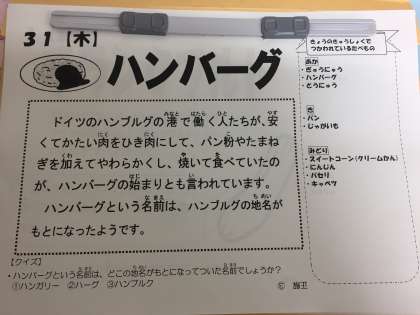 31【木】
ハンバーグ
ドイツのハンブルグの港で働く人たちが、安
くてかたい肉をひき肉にして、パン粉やたまね
ぎを加えてやわらかくし、焼いて食べていたの
が、ハンバーグの始まりとも言われています。
ハンバーグという名前は、ハンブルグの地名が
もとになったようです。
【クイズ】
・ハンバーグという名前は、どこの地名がもとになってついた名前でしょうか？
①ハンガリー ②ハーグ ③ハンブルク
きょうのきゅうしょくで
つかわれているたべもの
あか
・ぎゅうにゅう
・ハンバーグ
・とうにゅう
き
・パン
・じゃがいも
みどり
・スイートコーン(クリームかん)
・にんじん
・パセリ
・キャベツ